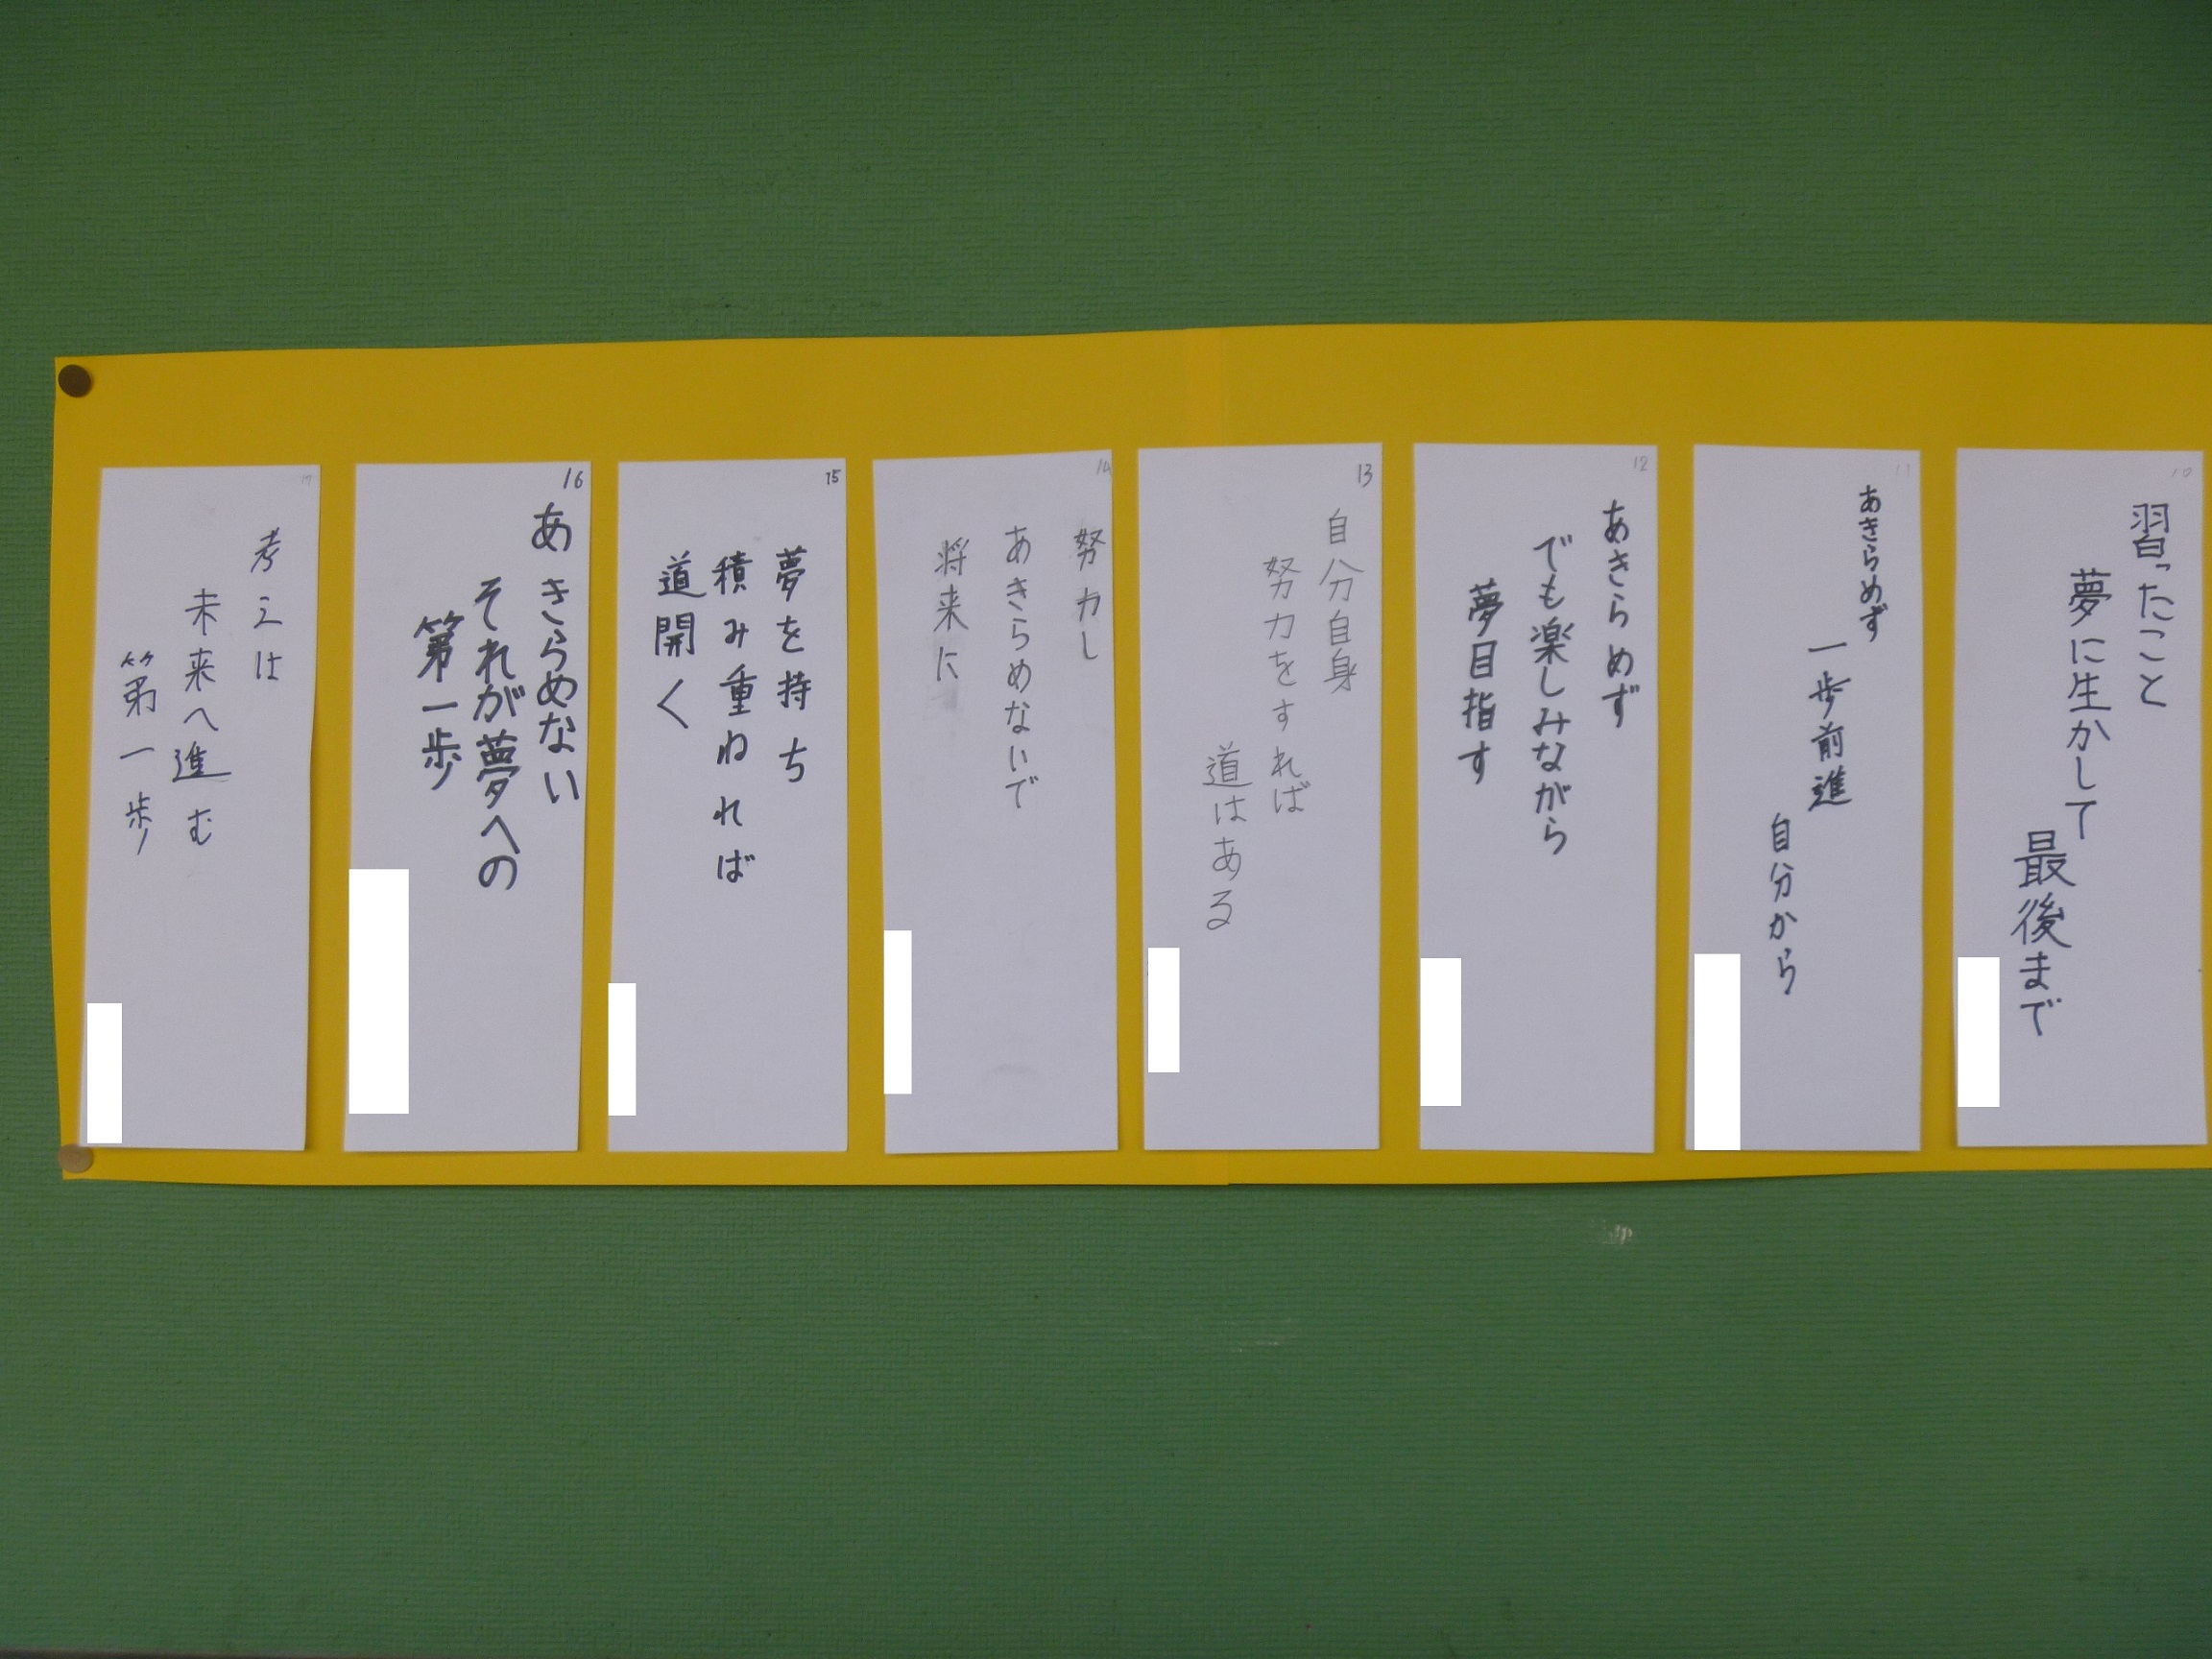 10
習ったこと
夢に生かして
最後まで
11
あきらめず
一歩前進
自分から
12
あきらめず
でも楽しみながら
夢目指す
13
自分自身
努力をすれば
道はある
14
努力し
あきらめないで
将来に
15
夢を持ち
積み重ねれば
道開く
16
あきらめない
それが夢への
第一歩
17
考えは
未来へ進む
第一歩